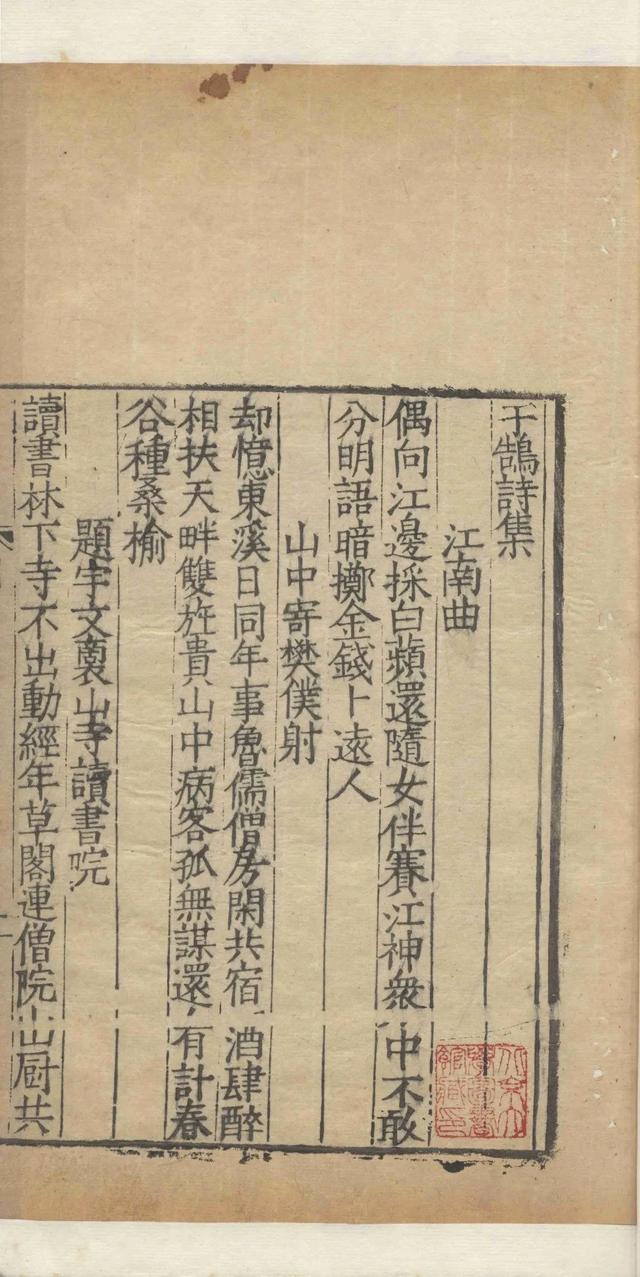 于鵠詩集
江南曲
偶向江邊採白蘋還隨女伴賽江神衆中不敢
分明語暗擲金錢卜遠人
山中寄樊僕射
却憶東溪日同年事魯儒僧房閑共宿酒肆醉
相扶天畔雙旌貴山中病客孤無謀還有計春
谷種桑榆
題宇文褧山寺讀書院
讀書林下寺不出動經年草閣連僧院山厨共
北京大
學圖書
館藏印